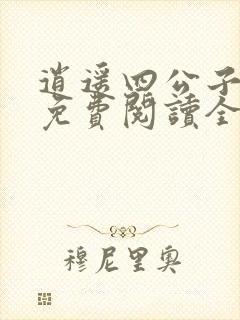 逍遥四公子
免費閱讀全
穆尼里奥